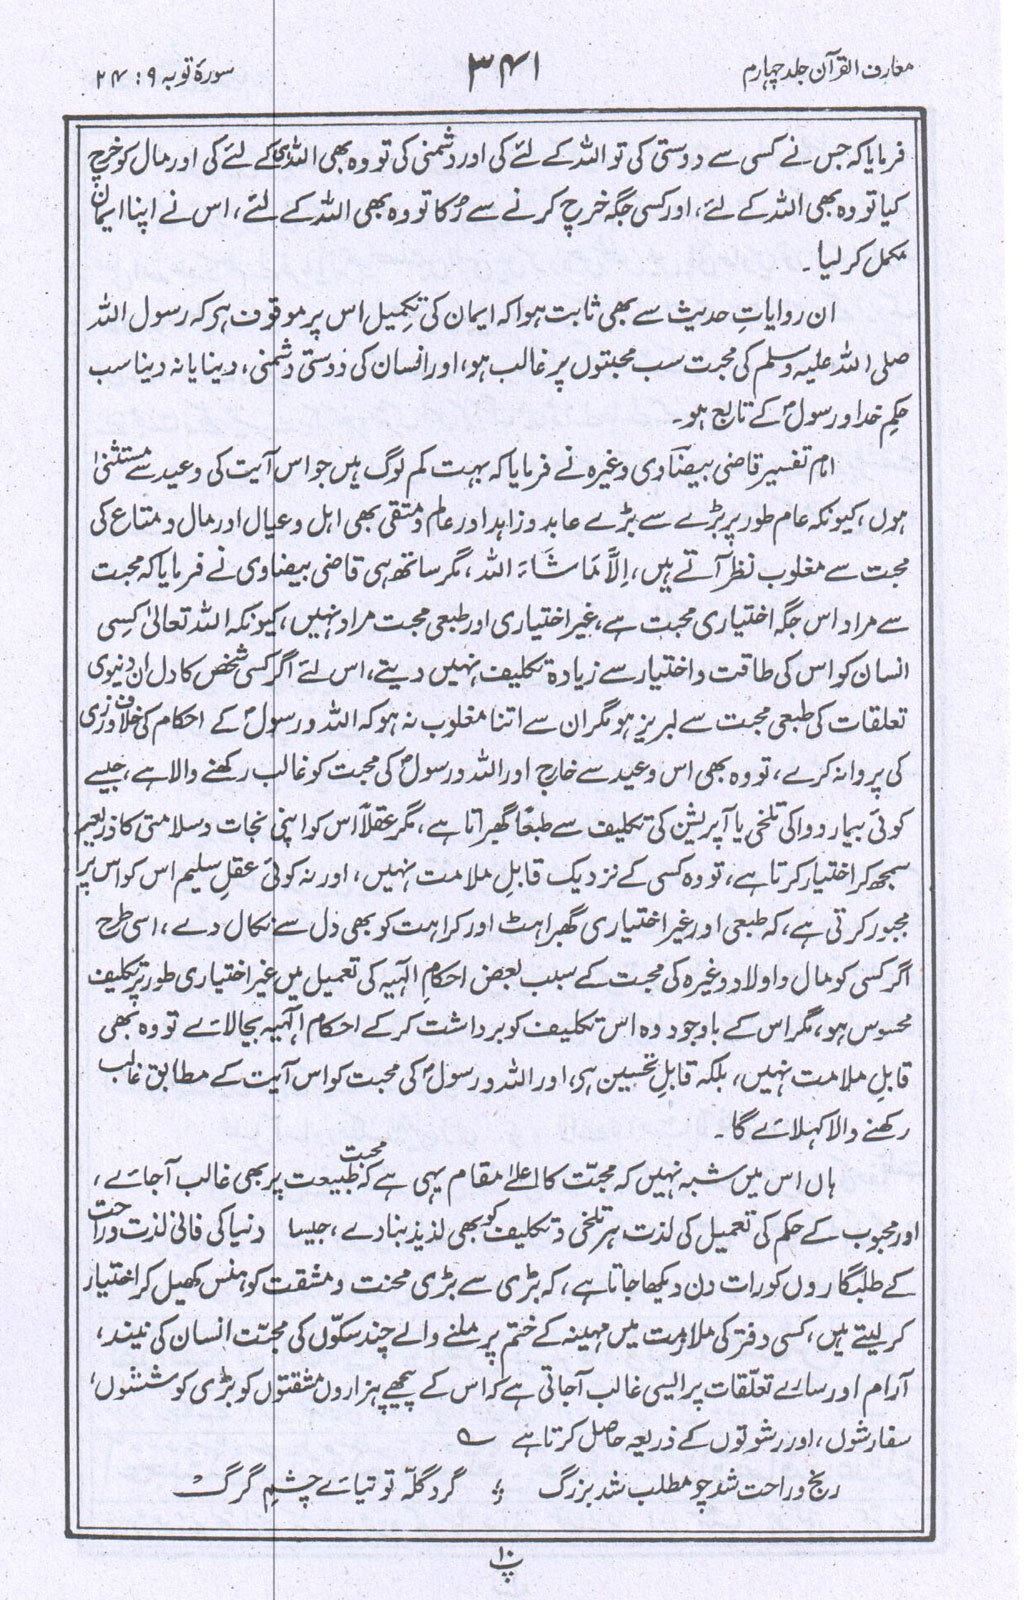 معارف القرآن جلد چہارم
۳۴۱
سورۂ توبہ ۹ : ۲۴
فرمایا کہ جس نے کسی سے دوستی کی تو اللہ کے لئے کی اور دشمنی کی تو وہ بھی اللہ ہی کے لئے کی اور مال کو خرچ
کیا تو وہ بھی اللہ کے لئے، اور کسی جگہ خرچ کرنے سے رُکا تو وہ بھی اللہ کے لئے، اس نے اپنا ایمان
مکمل کر لیا۔
ان روایاتِ حدیث سے بھی ثابت ہوا کہ ایمان کی تکمیل اس پر موقوف ہے کہ رسول اللہ
صلی اللہ علیہ وسلم کی محبت سب محبتوں پر غالب ہو، اور انسان کی دوستی دشمنی، دینا یا نہ دینا سب
حکمِ خدا و رسولؐ کے تابع ہو۔
امام تفسیر قاضی بیضاوی وغیرہ نے فرمایا کہ بہت کم لوگ ہیں جو اس آیت کی وعید سے مستثنیٰ
ہوں، کیونکہ عام طور پر بڑے سے بڑے عابد و زاہد اور عالم و متقی بھی اہل و عیال اور مال و متاع کی
محبت سے مغلوب نظر آتے ہیں، اِلَّا مَا شَاءَ اللہ، مگر ساتھ ہی قاضی بیضاوی نے فرمایا کہ محبت
سے مراد اس جگہ اختیاری محبت ہے، غیر اختیاری اور طبعی محبت مراد نہیں، کیونکہ اللہ تعالیٰ کِسی
انسان کو اس کی طاقت و اختیار سے زیادہ تکلیف نہیں دیتے، اس لئے اگر کسی شخص کا دل ان دنیوی
تعلقات کی طبعی محبت سے لبریز ہو مگر ان سے اتنا مغلوب نہ ہو کہ اللہ و رسولؐ کے احکام کی خلاف ورزی
کی پروا نہ کرے، تو وہ بھی اس وعید سے خارج اور اللہ و رسولؐ کی محبت کو غالب رکھنے والا ہے، جیسے
کوئی بیمار دوا کی تلخی یا آپریشن کی تکلیف سے طبعًا گھبراتا ہے، مگر عقلًا اس کو اپنی نجات و سلامتی کا ذریعہ
سمجھ کر اختیار کرتا ہے، تو وہ کسی کے نزدیک قابلِ ملامت نہیں، اور نہ کوئی عقلِ سلیم اس کو اس پر
مجبور کرتی ہے، کہ طبعی اور غیر اختیاری گھبراہٹ اور کراہت کو بھی دل سے نکال دے، اسی طرح
اگر کسی کو مال و اولاد وغیرہ کی محبت کے سبب بعض احکامِ الٰہیہ کی تعمیل میں غیر اختیاری طور پر تکلیف
محسوس ہو، مگر اس کے باوجود وہ اس تکلیف کو برداشت کر کے احکام الٰہیہ بجا لائے تو وہ بھی
قابلِ ملامت نہیں، بلکہ قابلِ تحسین ہے، اور اللہ و رسولؐ کی محبت کو اس آیت کے مطابق غالب
رکھنے والا کہلائے گا۔
ہاں اس میں شبہ نہیں کہ محبّت کا اعلےٰ مقام یہی ہے کہ محبت طبیعت پر بھی غالب آجائے،
اور محبوب کے حکم کی تعمیل کی لذت ہر تلخی و تکلیف کو بھی لذیذ بنا دے، جیسا دنیا کی فانی لذت و راحت
کے طلبگاروں کو رات دن دیکھا جاتا ہے، کہ بڑی سے بڑی محنت و مشقت کو ہنس کھیل کر اختیار
کر لیتے ہیں، کسی دفتر کی ملازمت میں مہینہ کے ختم پر ملنے والے چند سکّوں کی محبّت انسان کی نیند،
آرام اور سارے تعلّقات پر ایسی غالب آجاتی ہے کہ اس کے پیچھے ہزاروں مشقتوں کو بڑی کوششوں،
سفارشوں، اور رشوتوں کے ذریعہ حاصل کرتا ہے ؎
رنج و راحت شد چو مطلب شد بزرگ
گردِ گلّہ توتیائے چشمِ گرگ
پ ۱۰